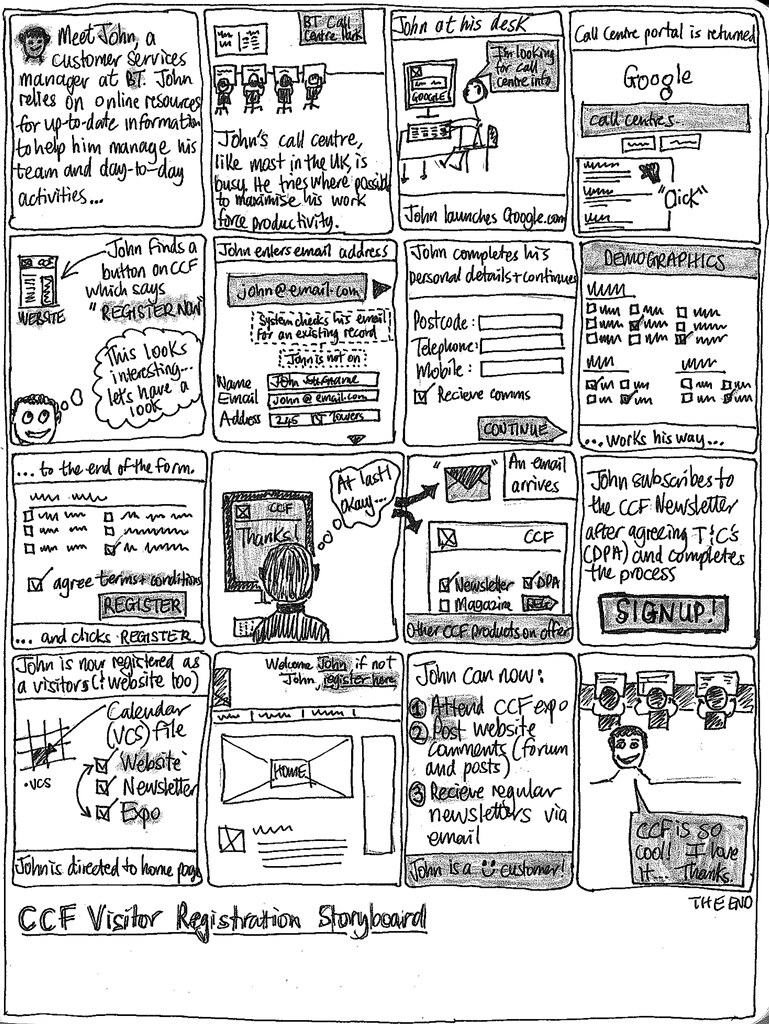 Meet John, a
customer services
manager at BT. John
relies on online resources
for up-to-date information
to help him manage his
team and day-to-day
activities...
BT Call
Centre Park
John's call centre,
like most in the UK, is
busy. He tries where possible
to maximise his work
force productivity.
John at his desk
I'm looking
for call
centre info
GOOGLE
John launches Google.com
Call Centre portal is returned
Google
call centres
"Click"
John finds a
button on CCF
which says
"REGISTER NOW"
WEBSITE
This looks
interesting...
let's have a
look
John enters email address
john@email.com
System checks his email
for an existing record
John is not on
Name John Surname
Email john@email.com
Address 245 Towers
John completes his
personal details + continues
Postcode:
Telephone:
Mobile:
Recieve comms
CONTINUE
DEMOGRAPHICS
...works his way...
...to the end of the form.
agree terms + conditions
REGISTER
...and clicks REGISTER
At last!
okay...
CCF
Thanks!
An email
arrives
CCF
Newsletter DPA
Magazine
Other CCF products on offer
John subscribes to
the CCF Newsletter
after agreeing T&C's
(DPA) and completes
the process
SIGNUP!
John is now registered as
a visitors (& website too)
Calendar
(VCS) file
.vcs
Website
Newsletter
Expo
John is directed to home page
Welcome John if not
John, register here
HOME
John can now:
1 Attend CCF expo
2 Post website
comments (forum
and posts)
3 Recieve regular
newsletters via
email
John is a customer!
CCF is so
cool! I love
it... Thanks.
THE END
CCF Visitor Registration Storyboard